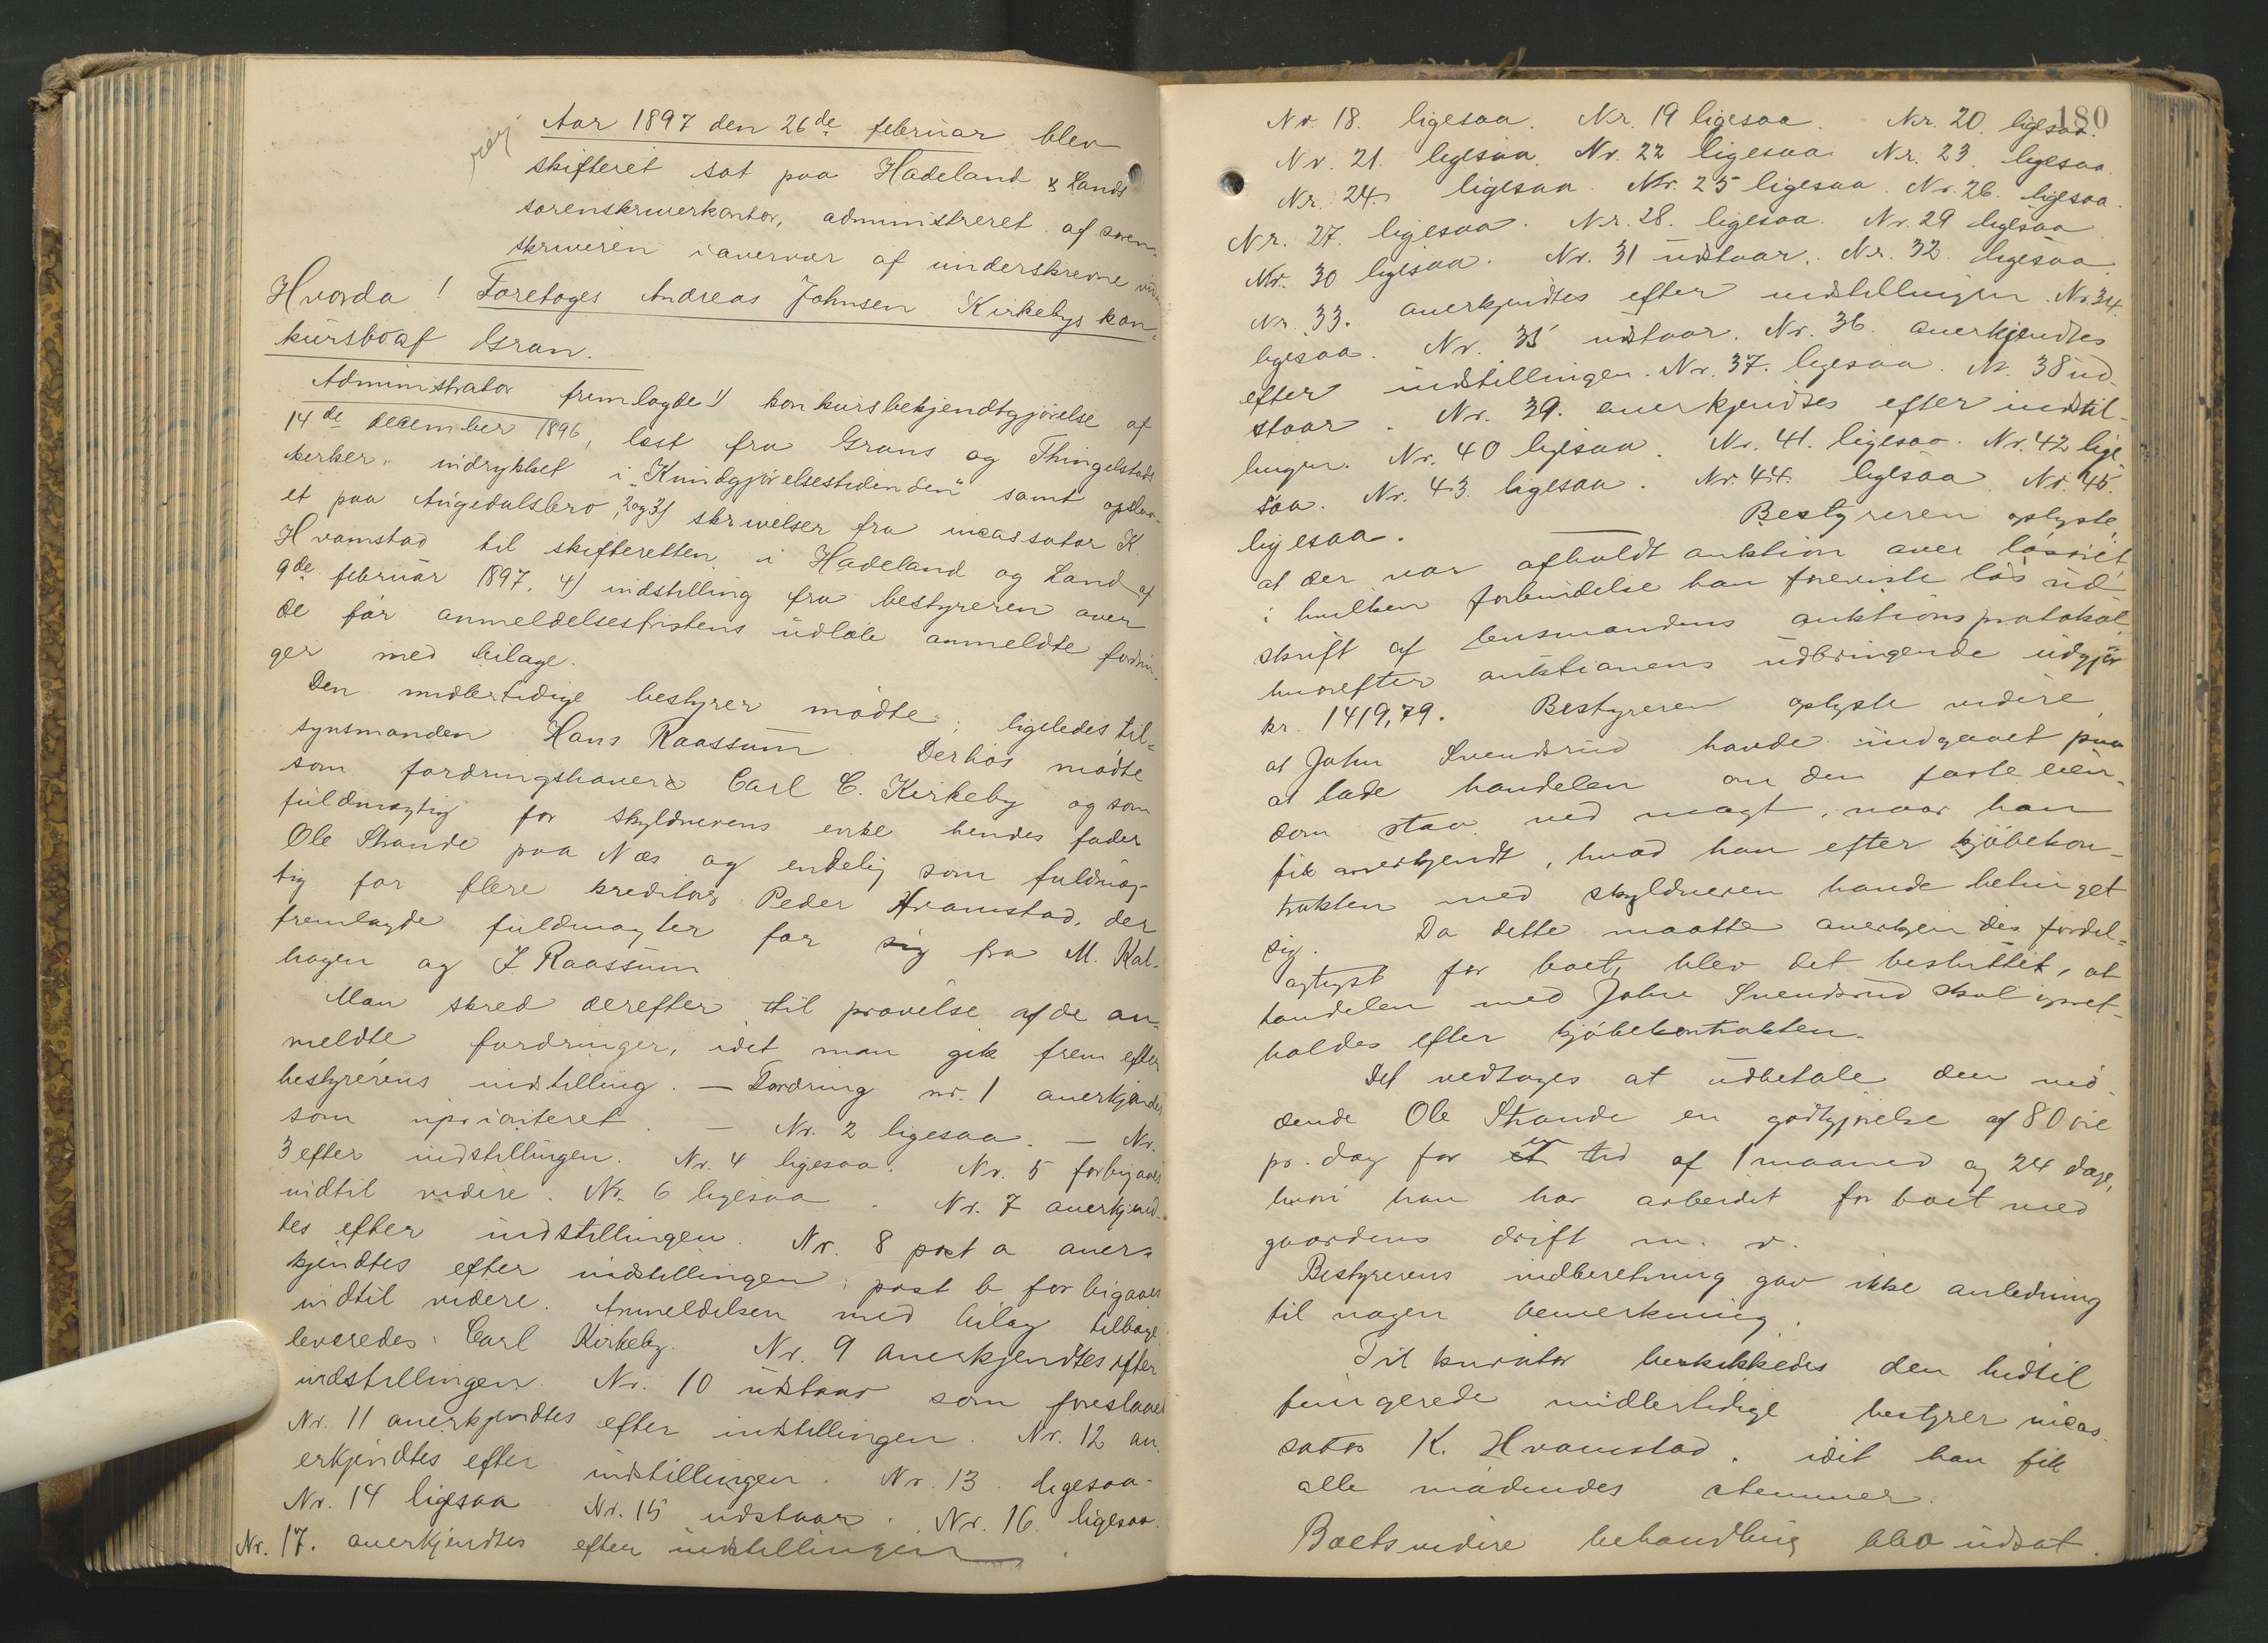 rej.
Aar 1897 den 26de februar blev
skifteret sat paa Hadeland & Lands
sorenskriverkontor, administreret af soren-
skriveren i overvær af underskrevne vid-
Hvorda! Foretoges Andreas Johnsen Kirkebys kon-
kursbo af Gran.
Administrator fremlagde 1) konkursbekjendtgjørelse af
14de december 1896, læst fra Grans og Thingelstads
kirker, indrykket i "Kundgjørelsestidenden" samt opslaa-
et paa Augedalsbro, 2 og 3) skrivelser fra incassator K.
Hvamstad til skifteretten i Hadeland og Land af
9de februar 1897, 4) indstilling fra bestyreren over
de før anmeldelsesfristens udløb anmeldte fordrin-
ger med bilage.
Den midlertidige bestyrer mødte; ligeledes til-
synsmanden Hans Raassum. Derhos mødte
som fordringshaver Carl C. Kirkeby og som
fuldmægtig for skyldnerens enke hendes fader
Ole Strande paa Næs og endelig som fuldmæg-
tig for flere kreditorer Peder Hvamstad, der
fremlagde fuldmagter for sig fra M. Kal-
hagen og J. Raassum
Man skred derefter til prøvelse af de an-
meldte fordringer, idet man gik frem efter
bestyrerens indstilling. — Fordring nr. 1 anerkjendes
som uprioriteret. — Nr. 2 ligesaa. — Nr.
3 efter indstillingen. Nr. 4 ligesaa. Nr. 5 forbigaaes
indtil videre. Nr. 6 ligesaa. Nr. 7 anerkjend-
tes efter indstillingen. Nr. 8 post a aner-
kjendtes efter indstillingen; post b forbigaaes
indtil videre. Anmeldelsen med bilag tilbage
leveredes Carl Kirkeby. Nr. 9 anerkjendtes efter
indstillingen. Nr. 10 udstaar som foreslaaet
Nr. 11 anerkjendtes efter indstillingen. Nr. 12 an-
erkjendtes efter indstillingen. Nr. 13. ligesaa.
Nr. 14 ligesaa. Nr. 15 udstaar. Nr. 16. ligesaa.
Nr. 17. anerkjendtes efter indstillingen.
180
Nr. 18. ligesaa. Nr. 19 ligesaa. Nr. 20. ligesaa.
Nr. 21. ligesaa. Nr. 22 ligesaa Nr. 23. ligesaa.
Nr. 24. ligesaa. Nr. 25 ligesaa. Nr. 26. ligesaa.
Nr. 27. ligesaa. Nr. 28. ligesaa. Nr. 29 ligesaa.
Nr. 30 ligesaa. Nr. 31 udstaar. Nr. 32. ligesaa.
Nr. 33. anerkjendtes efter indstillingen. Nr. 34.
ligesaa. Nr. 35 udstaar. Nr. 36. anerkjendtes
efter indstillingen. Nr. 37. ligesaa. Nr. 38 ud-
staar. Nr. 39. anerkjendtes efter indstil-
lingen. Nr. 40 ligesaa. Nr. 41. ligesaa. Nr. 42 lige-
saa. Nr. 43. ligesaa. Nr. 44. ligesaa Nr. 45.
ligesaa. — Bestyreren oplyste,
at der var afholdt auktion over løsøret,
i hvilken forbindelse han foreviste løs ud-
skrift af lensmandens auktionsprotokol,
hvorefter auktionens udbringende udgjør
kr. 1419,79. Bestyreren oplyste videre,
at John Svendsrud havde indgaaet paa
at lade handelen om den faste eien-
dom staa ved magt, naar han
fik anerkjendt, hvad han efter kjøbekon-
trakten med skyldneren havde betinget
sig. Da dette maatte anerkjendes fordel-
agtigst for boet, blev det besluttet, at
handelen med John Svendsrud skal opret-
holdes efter kjøbekontrakten.
Det vedtoges at udbetale den mø-
dende Ole Strande en godtgjørelse af 80 øre
pr. dag for en tid af 1 maaned og 24 dage,
hvori han har arbeidet for boet med
gaardens drift m. v.
Bestyrerens indberetning gav ikke anledning
til nogen bemerkning.
Til kurator beskikkedes den hidtil
fungerede midlertidige bestyrer incas-
sator K. Hvamstad, idet han fik
alle mødendes stemmer.
Boets videre behandling blev udsat.